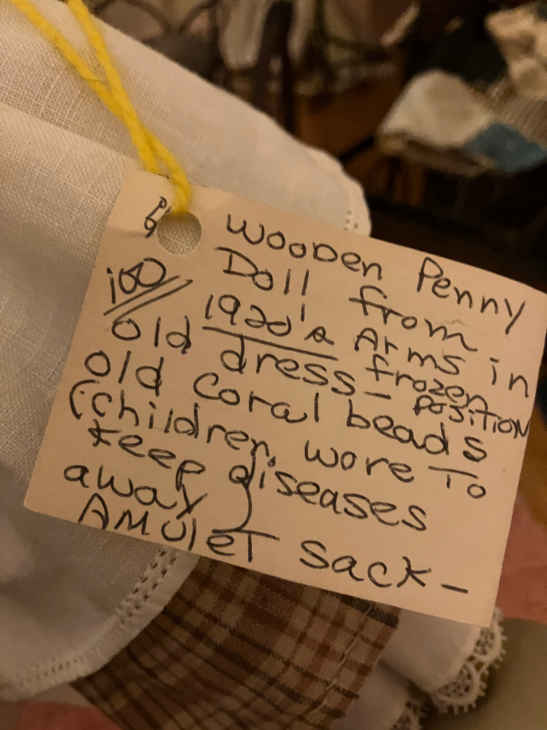 Wooden Penny
Doll from
1920's Arms in
Old dress - frozen position
Old Coral beads
(children wore To
keep diseases
away)
Amulet Sack -
100